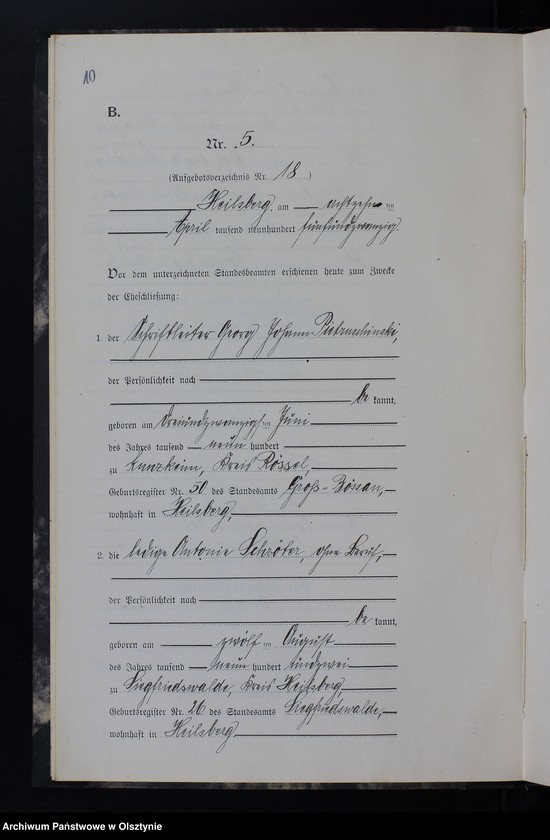 10
B.
Nr. 5.
(Aufgebotsverzeichnis Nr. 18)
Heilsberg, am achtzehn ten
April tausend neunhundert fünfundzwanzig.
Vor dem unterzeichneten Standesbeamten erschienen heute zum Zwecke
der Eheschließung:
1. der Schriftleiter Georg Johann
der Persönlichkeit nach
be kannt,
geboren am dreiundzwanzigsten Juni
des Jahres tausend neun hundert
zu Kunzkeim, Kreis Rössel,
Geburtsregister Nr. 50 des Standesamts Groß-Bössau,
wohnhaft in Heilsberg,
2. die ledige Antonie Schröter, ohne Beruf,
der Persönlichkeit nach
be kannt,
geboren am zwölf ten August
des Jahres tausend neun hundert undzwei
zu Siegfriedswalde, Kreis Heilsberg
Geburtsregister Nr. 26 des Standesamts Siegfriedswalde,
wohnhaft in Heilsberg,
Archiwum Państwowe w Olsztynie